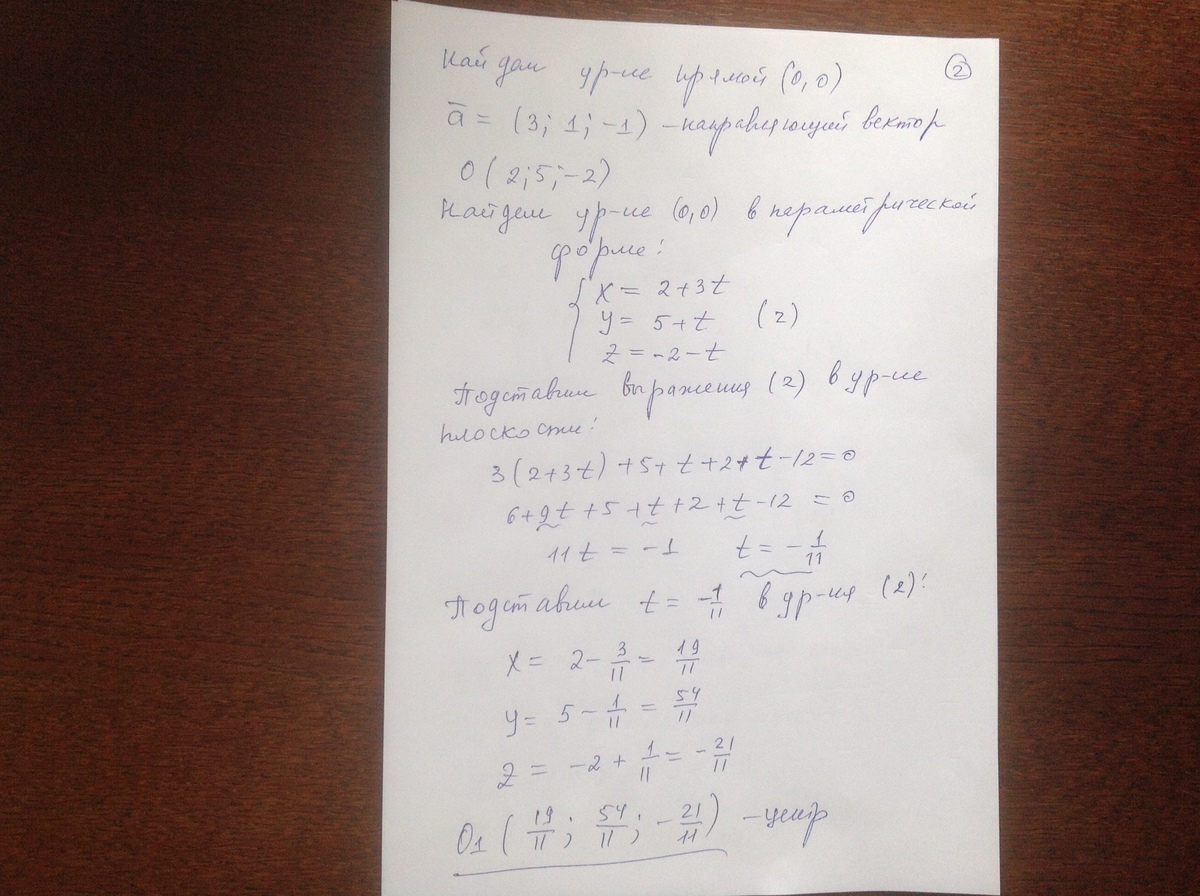 2
Найдем ур-ие прямой (0,0)
a̅ = (3; 1; -1) - направляющий вектор
O (2;5;-2)
Найдем ур-ие (0,0) в параметрической
форме:
{ x = 2+3t
y = 5+t (2)
z = -2-t
Подставим выражения (2) в ур-ие
плоскости:
3(2+3t) +5+t+2+t-12=0
6+9t+5+t+2+t-12 = 0
11t = -1 t = -1/11
Подставим t = -1/11 в ур-ия (2):
x = 2 - 3/11 = 19/11
y = 5 - 1/11 = 54/11
z = -2 + 1/11 = -21/11
O1 (19/11; 54/11; -21/11) - центр